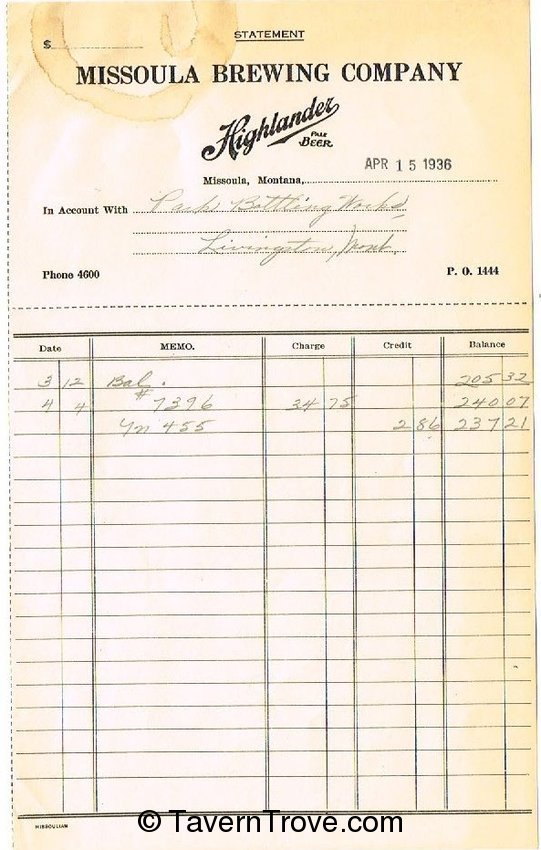 STATEMENT
$
MISSOULA BREWING COMPANY
Highlander
PALE
BEER
APR 15 1936
Missoula, Montana,
In Account With Park Bottling Works
Livingston, Mont.
Phone 4600 P. O. 1444
Date MEMO. Charge Credit Balance
3 12 Bal. 205 32
4 4 # 7396 34 75 240 07
455 2 86 237 21
MISSOULIAN
© TavernTrove.com